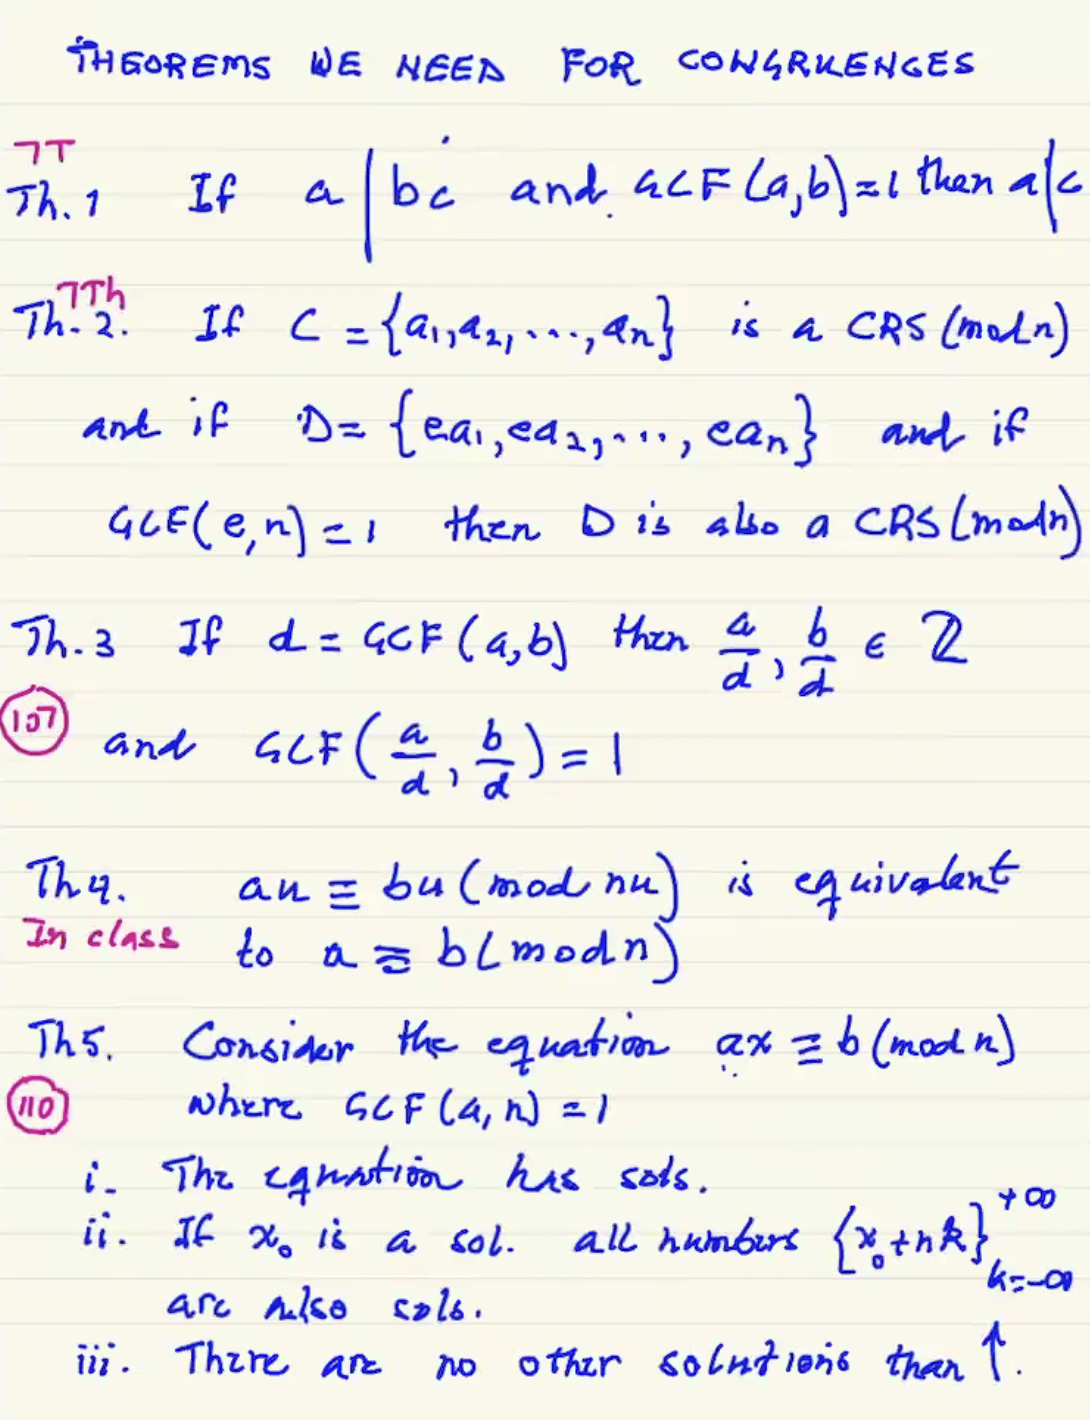 THEOREMS WE NEED FOR CONGRUENCES
7T
Th. 1 If a | bc and GCF (a,b) = 1 then a|c
7Th
Th. 2. If C = {a₁, a₂, ..., aₙ} is a CRS (mod n)
and if D = {ea₁, ea₂, ..., eaₙ} and if
GCF (e, n) = 1 then D is also a CRS (mod n)
Th. 3 If d = GCF (a, b) then a/d, b/d ∈ ℤ
107 and GCF (a/d, b/d) = 1
Th 4. au ≡ bu (mod nu) is equivalent
In class to a ≡ b (mod n)
Th 5. Consider the equation ax ≡ b (mod n)
110 where GCF (a, n) = 1
i. The equation has sols.
ii. If x₀ is a sol. all numbers {x₀ + nk} +∞ k=-∞
are also sols.
iii. There are no other solutions than ↑.